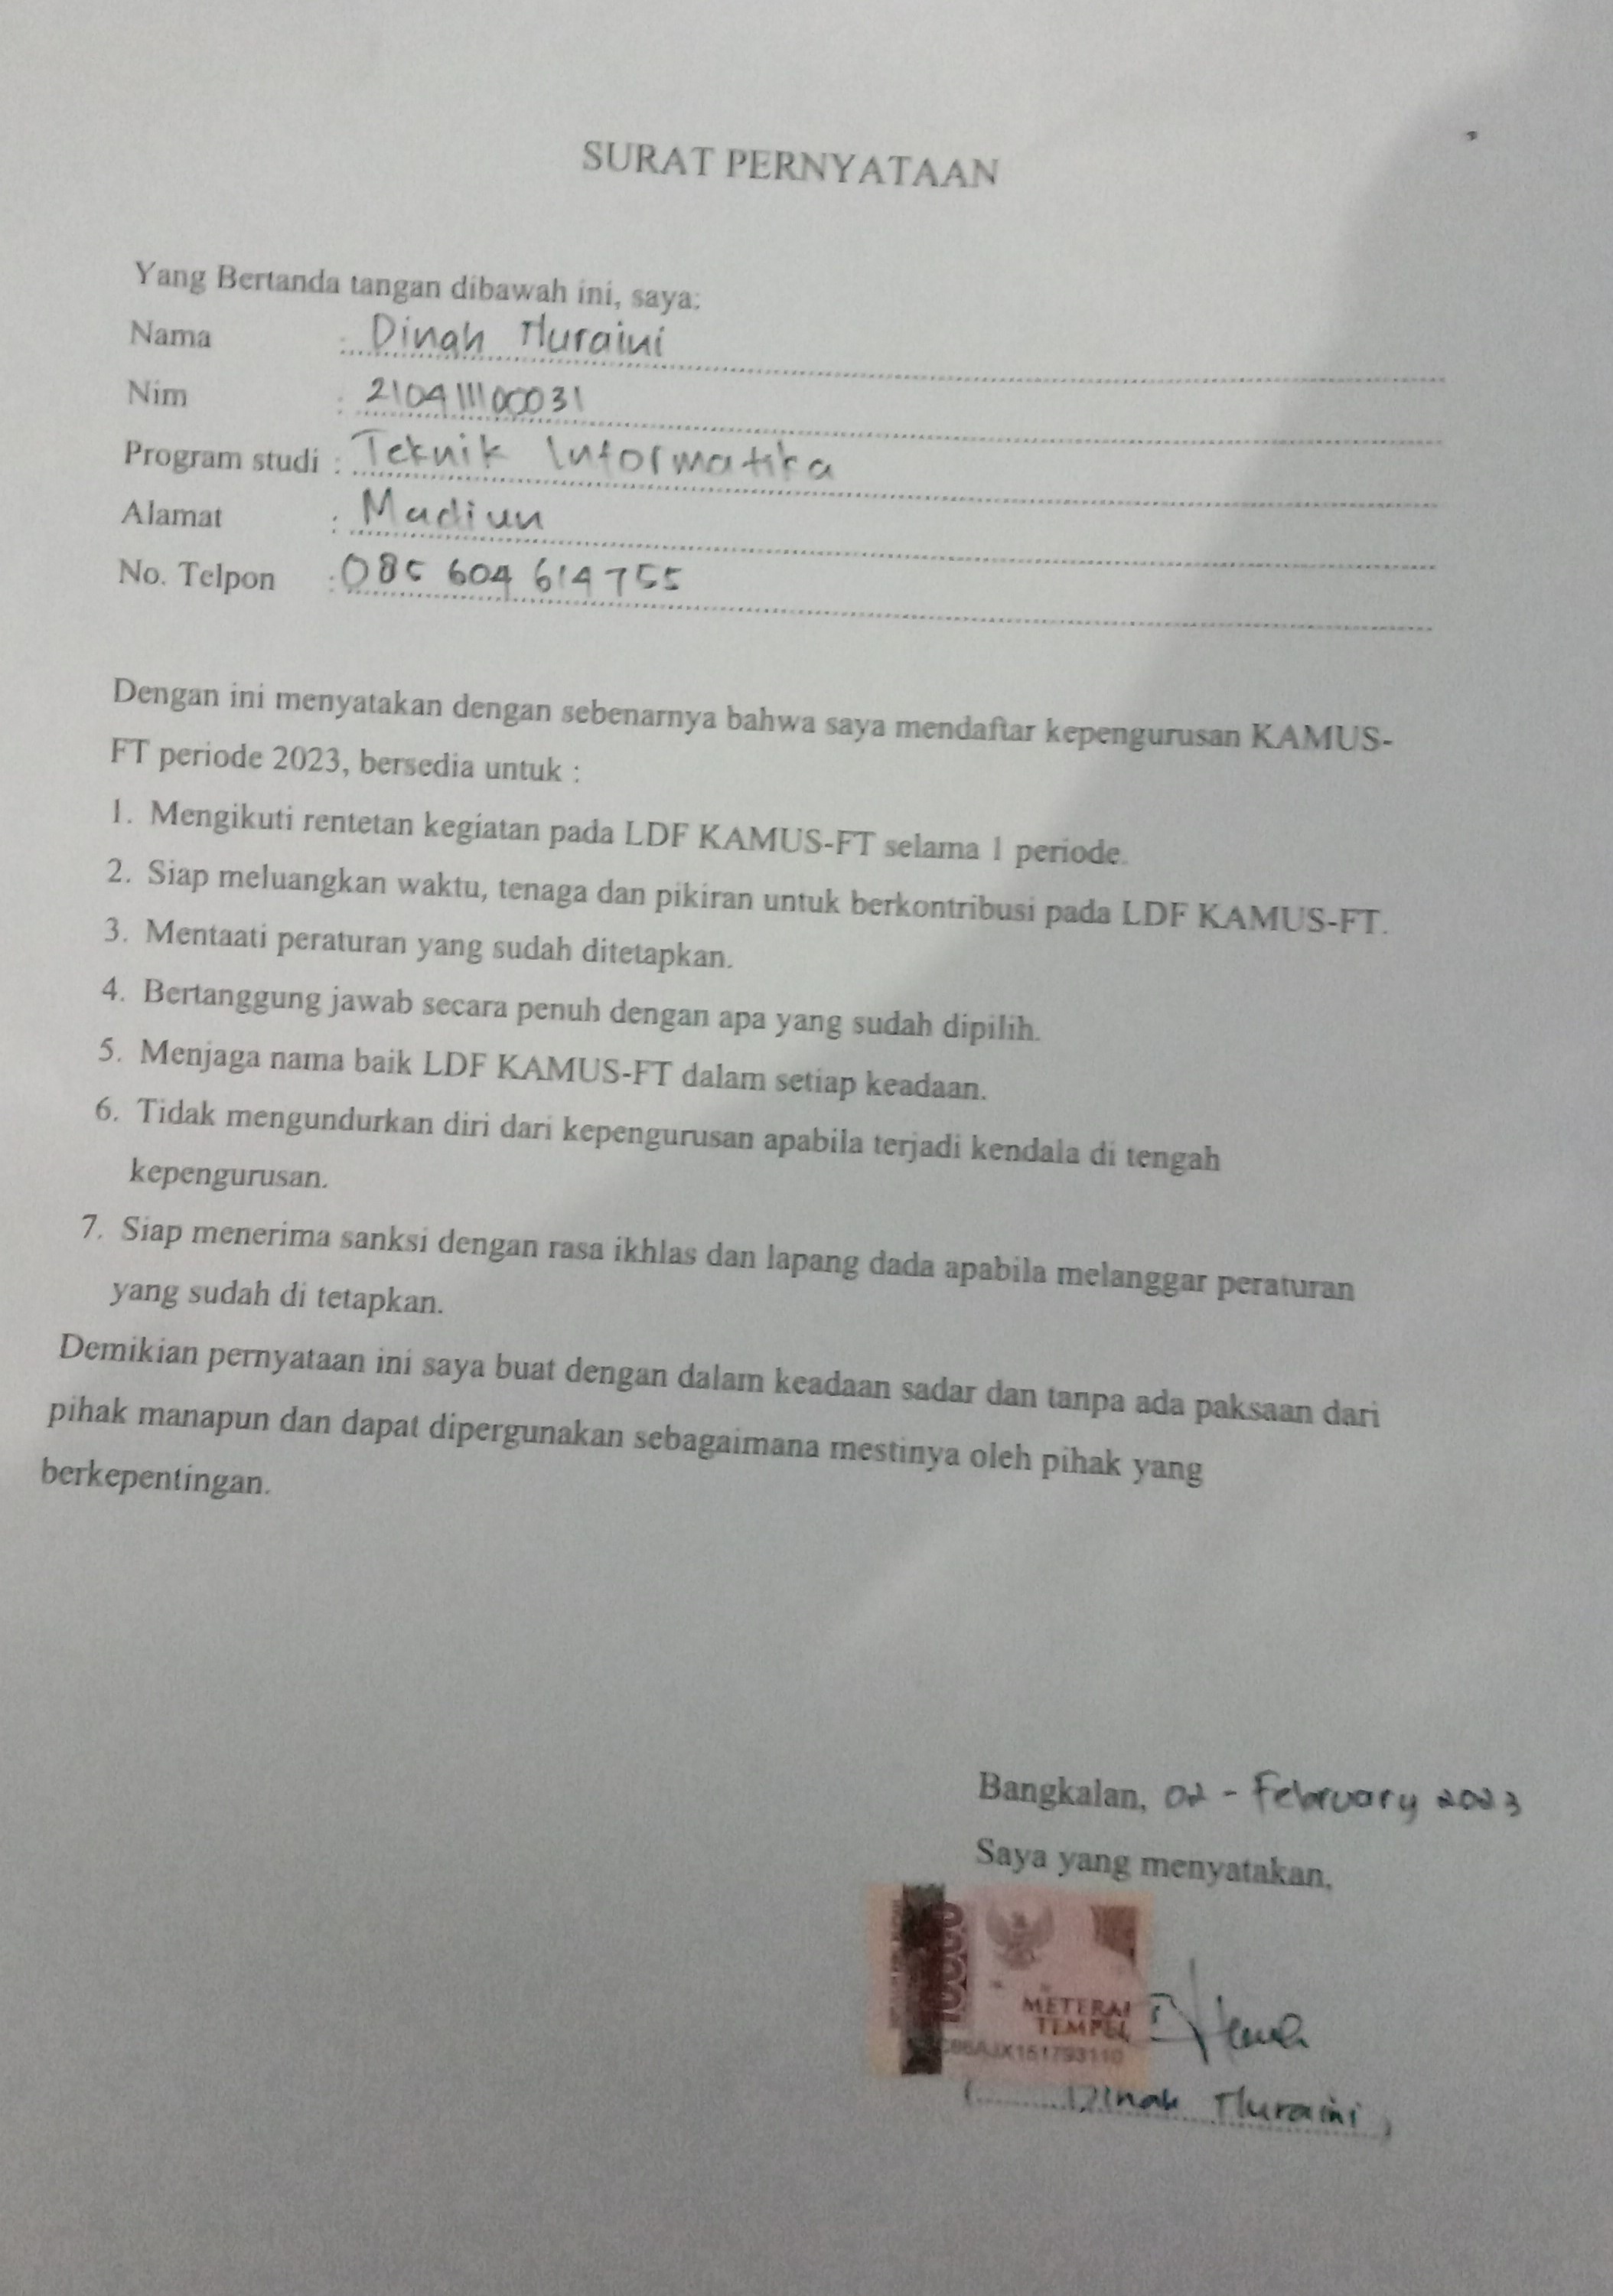 SURAT PERNYATAAN
Yang Bertanda tangan dibawah ini, saya:
Nama : Dinah Nuraini
Nim : 210411100031
Program studi : Teknik Informatika
Alamat : Madiun
No. Telpon : 085 604 614 755
Dengan ini menyatakan dengan sebenarnya bahwa saya mendaftar kepengurusan KAMUS-
FT periode 2023, bersedia untuk :
1. Mengikuti rentetan kegiatan pada LDF KAMUS-FT selama 1 periode.
2. Siap meluangkan waktu, tenaga dan pikiran untuk berkontribusi pada LDF KAMUS-FT.
3. Mentaati peraturan yang sudah ditetapkan.
4. Bertanggung jawab secara penuh dengan apa yang sudah dipilih.
5. Menjaga nama baik LDF KAMUS-FT dalam setiap keadaan.
6. Tidak mengundurkan diri dari kepengurusan apabila terjadi kendala di tengah
kepengurusan.
7. Siap menerima sanksi dengan rasa ikhlas dan lapang dada apabila melanggar peraturan
yang sudah di tetapkan.
Demikian pernyataan ini saya buat dengan dalam keadaan sadar dan tanpa ada paksaan dari
pihak manapun dan dapat dipergunakan sebagaimana mestinya oleh pihak yang
berkepentingan.
Bangkalan, 02 - February 2023
Saya yang menyatakan,
10000
METERAI
TEMPEL
(Dinah Nuraini)